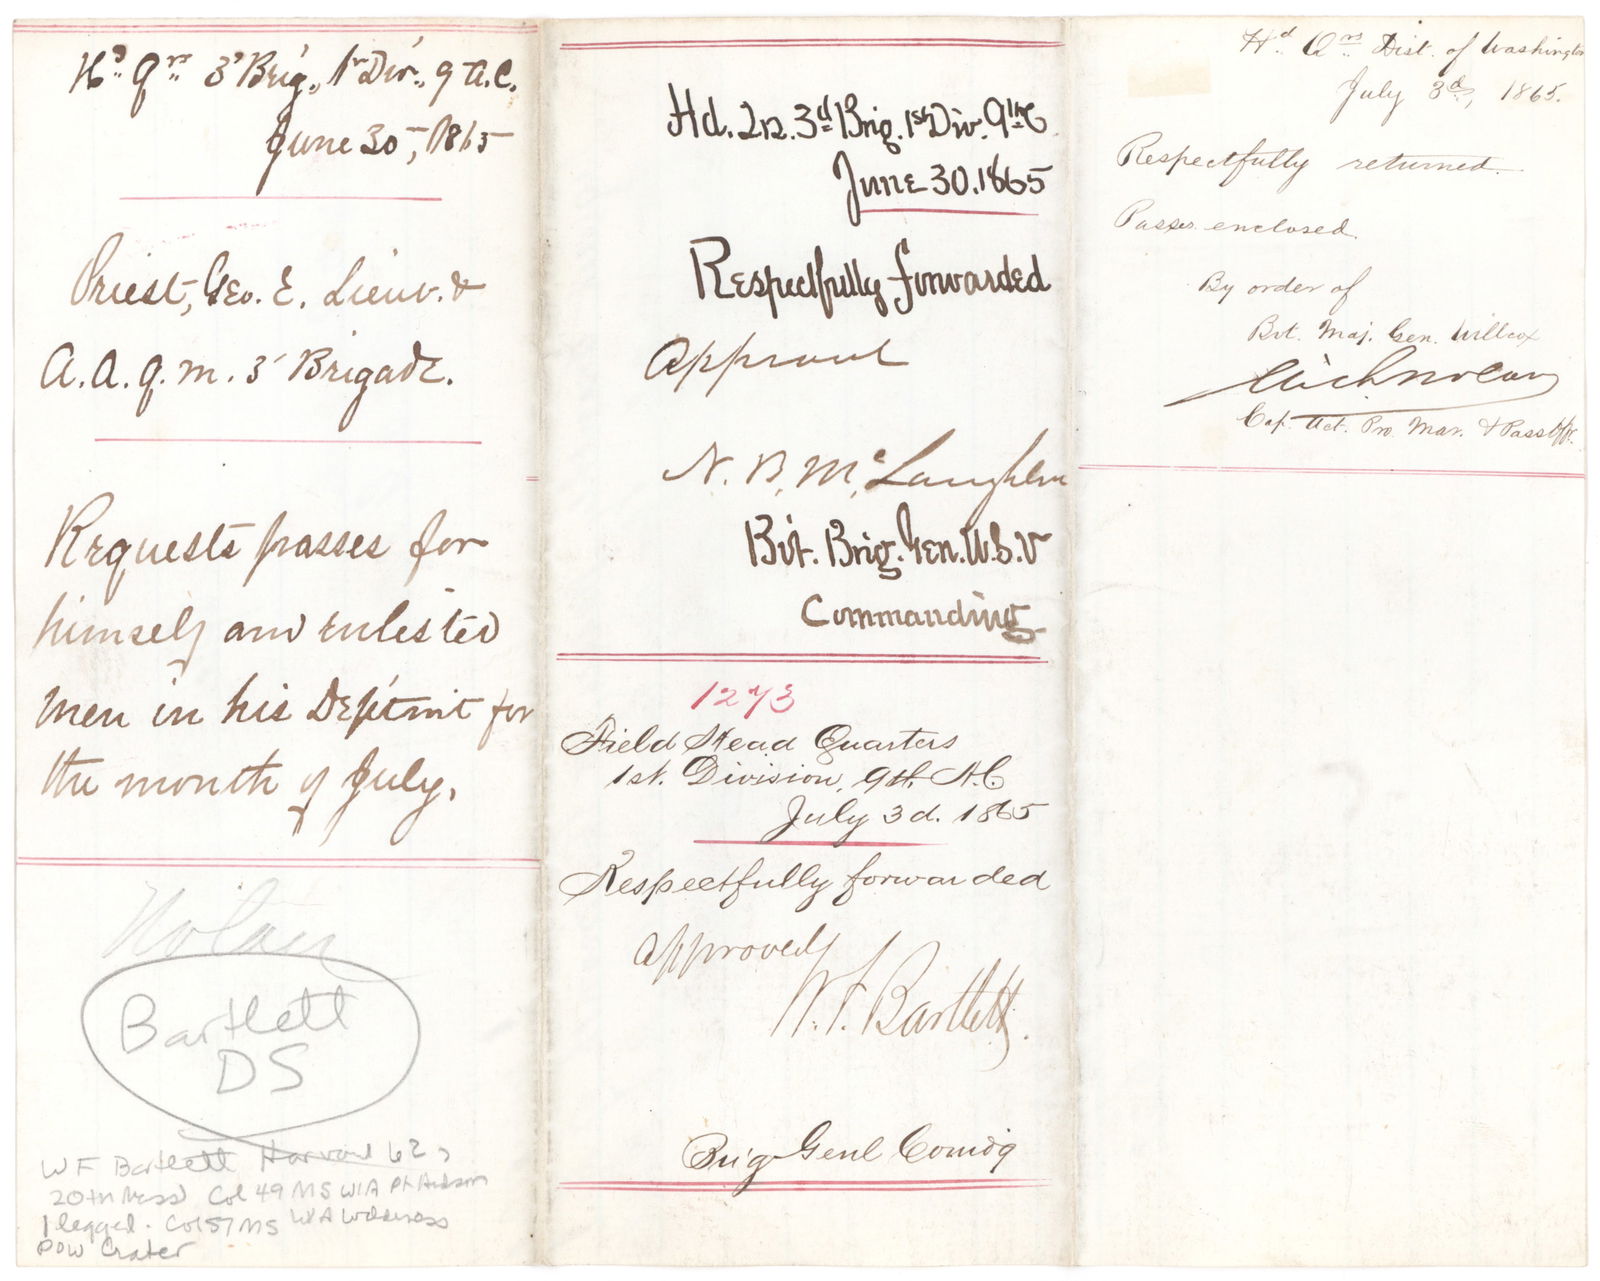 Hd. Qrs 3d Brig., 1st Div., 9 A.C.
June 30, 1865
Priest, Geo. E. Lieut. &
A. A. Q. M. 3d Brigade.
Requests passes for
himself and enlisted
men in his Dep'tmt for
the month of July.
Nolan
Bartlett
DS
W F Bartlett Harvard 62
20th Mass Col 49 MS WIA Pt Hudson
1 legged. Col 57 MS WIA Wilderness
POW Crater
Hd. Qr. 3d Brig. 1st Div. 9th A.C.
June 30. 1865
Respectfully forwarded
Approved
N. B. McLaughlen
Bvt. Brig. Gen. U.S.V
Commanding
1273
Field Head Quarters
1st. Division, 9th A.C
July 3d. 1865
Respectfully forwarded
approved
W. F. Bartlett.
Brig Genl Comdg
Hd. Qrs Dist. of Washington
July 3d, 1865.
Respectfully returned.
Passes enclosed.
By order of
Bvt. Maj. Gen. Willcox
Nolan
Cap. Act. Pro. Mar. & Pass Offr.